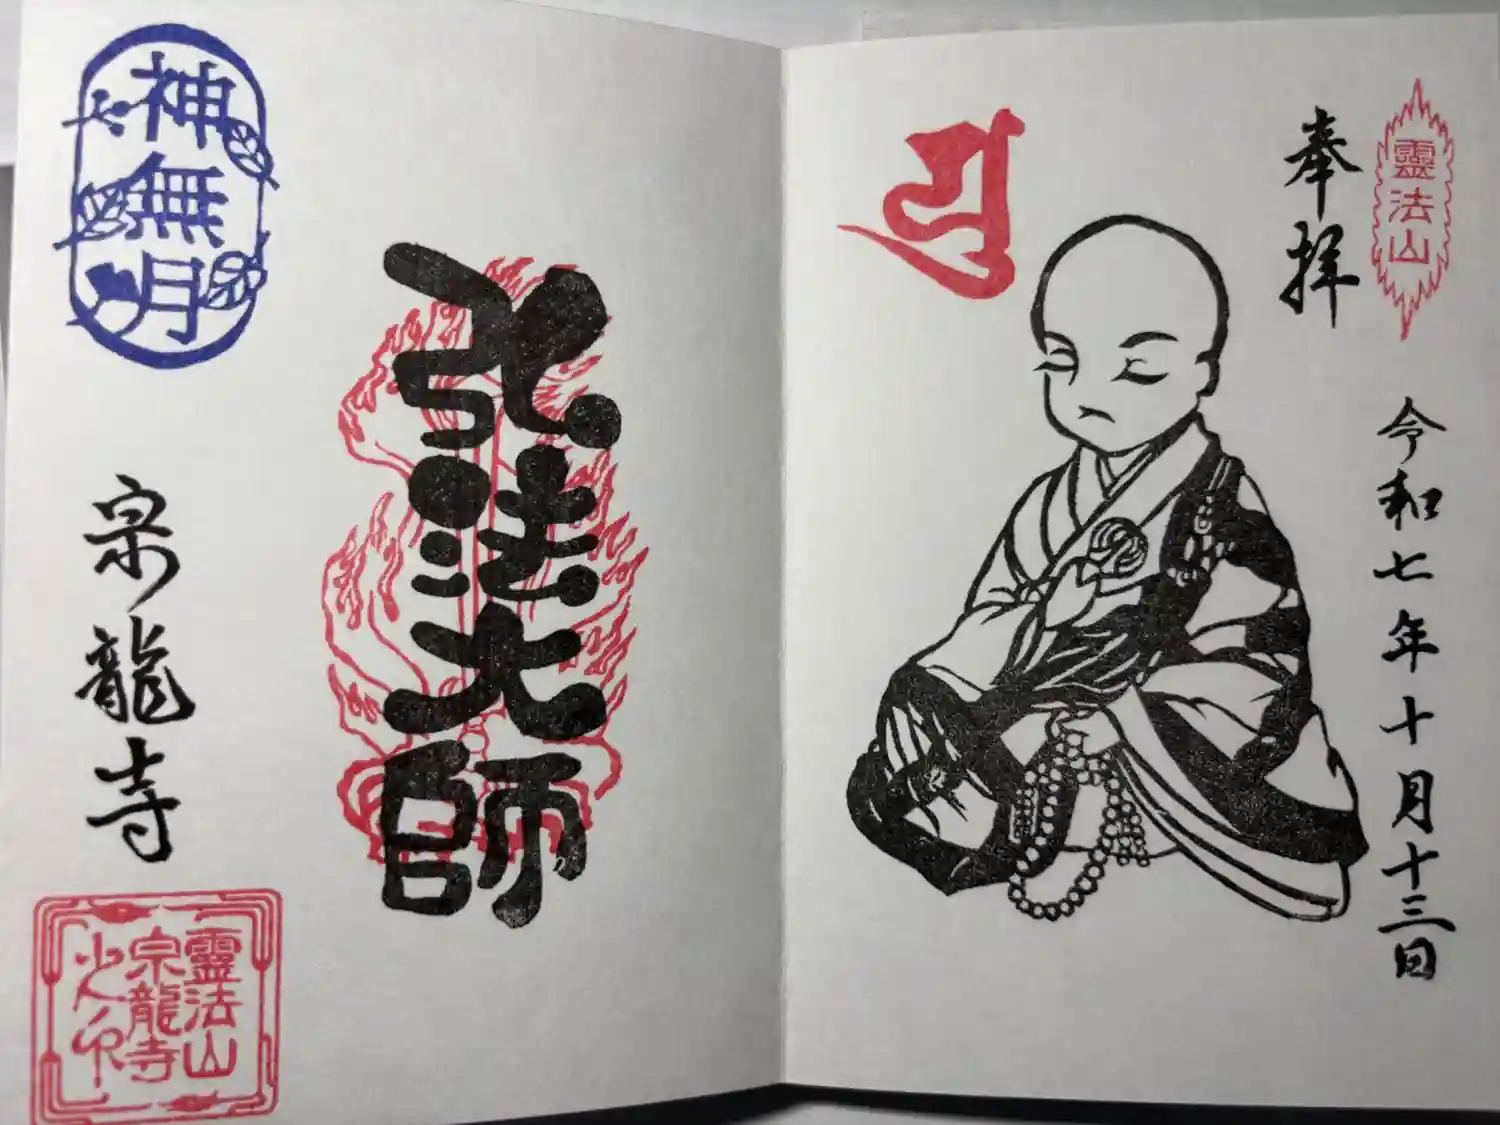 霊法山
奉拝
令和七年十月十三日
弘法大師
神無月
宗龍寺
霊法山
宗龍寺
之印